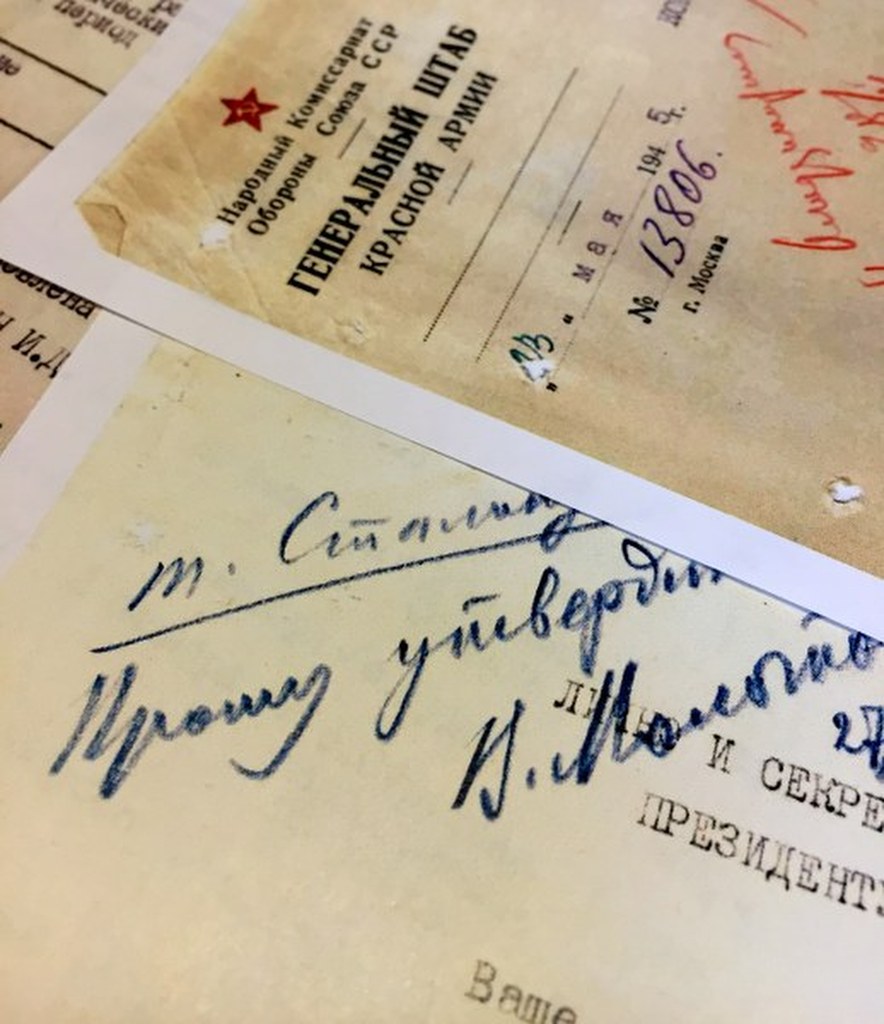 Народный Комиссариат
Обороны Союза ССР
ГЕНЕРАЛЬНЫЙ ШТАБ
КРАСНОЙ АРМИИ
"23" мая 1945 г.
№ 13806.
г. Москва
т. Сталину
Прошу утвердить
В. Молотов
ЛИЧНО И СЕКРЕ
ПРЕЗИДЕНТУ
Ваше